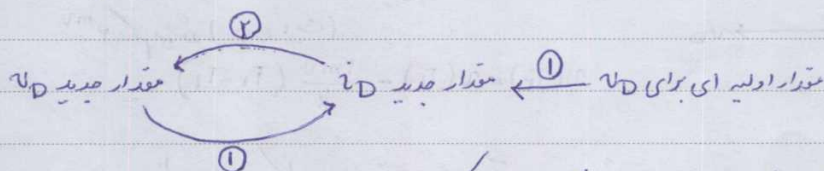 ②
مقدار اولیه ای برای v_D ① مقدار جدید i_D مقدار جدید v_D
①